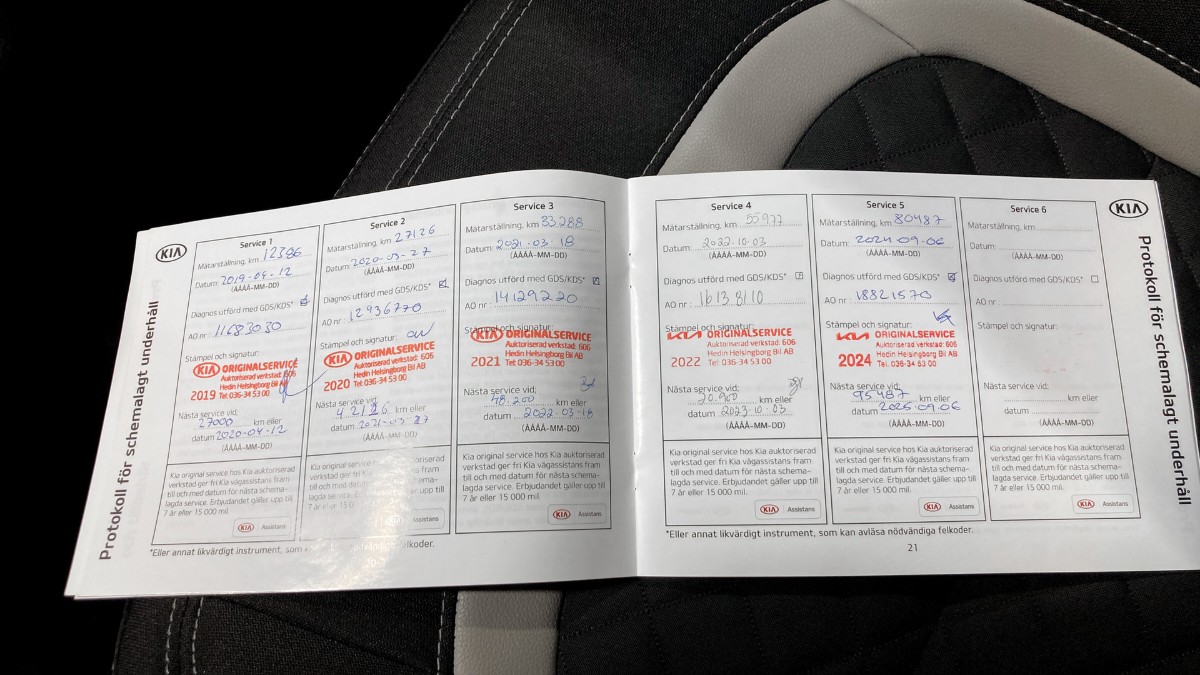 Protokoll för schemalagt underhåll
KIA
Service 1
Mätarställning, km 12386
Datum: 2019-04-12
(ÅÅÅÅ-MM-DD)
Diagnos utförd med GDS/KDS*
AO nr : 11683030
Stämpel och signatur:
KIA ORIGINALSERVICE
Auktoriserad verkstad: 606
Hedin Helsingborg Bil AB
2019 Tel: 036-34 53 00
Nästa service vid:
27000 km eller
datum 2020-04-12
(ÅÅÅÅ-MM-DD)
Kia original service hos Kia auktoriserad
verkstad ger fri Kia vägassistans fram
till och med datum för nästa schema-
lagda service. Erbjudandet gäller upp till
7 år eller 15 000 mil.
KIA Assistans
Service 2
Mätarställning, km 27126
Datum: 2020-03-27
(ÅÅÅÅ-MM-DD)
Diagnos utförd med GDS/KDS*
AO nr : 12936770
Stämpel och signatur:
KIA ORIGINALSERVICE
Auktoriserad verkstad: 606
Hedin Helsingborg Bil AB
2020 Tel: 036-34 53 00
Nästa service vid:
42126 km eller
datum 2021-03-27
(ÅÅÅÅ-MM-DD)
Kia original service hos Kia auktoriserad
fram
schema-
upp till
7 år eller 15 0
KIA Assistans
Service 3
Mätarställning, km 33288
Datum: 2021-03-18
(ÅÅÅÅ-MM-DD)
Diagnos utförd med GDS/KDS*
AO nr : 14129220
Stämpel och signatur:
KIA ORIGINALSERVICE
Auktoriserad verkstad: 606
Hedin Helsingborg Bil AB
2021 Tel: 036-34 53 00
Nästa service vid:
48.200 km eller
datum 2022-03-18
(ÅÅÅÅ-MM-DD)
Kia original service hos Kia auktoriserad
verkstad ger fri Kia vägassistans fram
till och med datum för nästa schema-
lagda service. Erbjudandet gäller upp till
7 år eller 15 000 mil.
KIA Assistans
*Eller annat likvärdigt instrument, som felkoder.
Service 4
Mätarställning, km 55977
Datum: 2022-10-03
(ÅÅÅÅ-MM-DD)
Diagnos utförd med GDS/KDS*
AO nr : 1613 8110
Stämpel och signatur:
KIA ORIGINALSERVICE
Auktoriserad verkstad: 606
2022 Hedin Helsingborg Bil AB
Tel. 036-34 53 00
Nästa service vid:
km eller
datum 2023-10-03
(ÅÅÅÅ-MM-DD)
Kia original service hos Kia auktoriserad
verkstad ger fri Kia vägassistans fram
till och med datum för nästa schema-
lagda service. Erbjudandet gäller upp till
7 år eller 15 000 mil.
KIA Assistans
Service 5
Mätarställning, km 80487
Datum: 2024-09-06
(ÅÅÅÅ-MM-DD)
Diagnos utförd med GDS/KDS*
AO nr : 18821570
Stämpel och signatur:
KIA ORIGINALSERVICE
Auktoriserad verkstad: 606
2024 Hedin Helsingborg Bil AB
Tel. 036-34 53 00
Nästa service vid:
95487 km eller
datum 2025-09-06
(ÅÅÅÅ-MM-DD)
Kia original service hos Kia auktoriserad
verkstad ger fri Kia vägassistans fram
till och med datum för nästa schema-
lagda service. Erbjudandet gäller upp till
7 år eller 15 000 mil.
KIA Assistans
Service 6
Mätarställning, km
Datum:
(ÅÅÅÅ-MM-DD)
Diagnos utförd med GDS/KDS*
AO nr :
Stämpel och signatur:
Nästa service vid:
km eller
datum
(ÅÅÅÅ-MM-DD)
Kia original service hos Kia auktoriserad
verkstad ger fri Kia vägassistans fram
till och med datum för nästa schema-
lagda service. Erbjudandet gäller upp till
7 år eller 15 000 mil.
KIA Assistans
*Eller annat likvärdigt instrument, som kan avläsa nödvändiga felkoder.
21
KIA
Protokoll för schemalagt underhåll